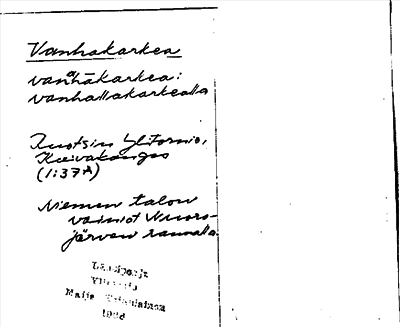 Vanhakarkea
vanhākarkea:
vanhallakarkealla
Ruotsin Ylitornio,
Kuivakangas
(1:37A)
Niemen talon
vainiot Vuoro-
järven rannalla.
Länsipohja
Ylitornio
Maija